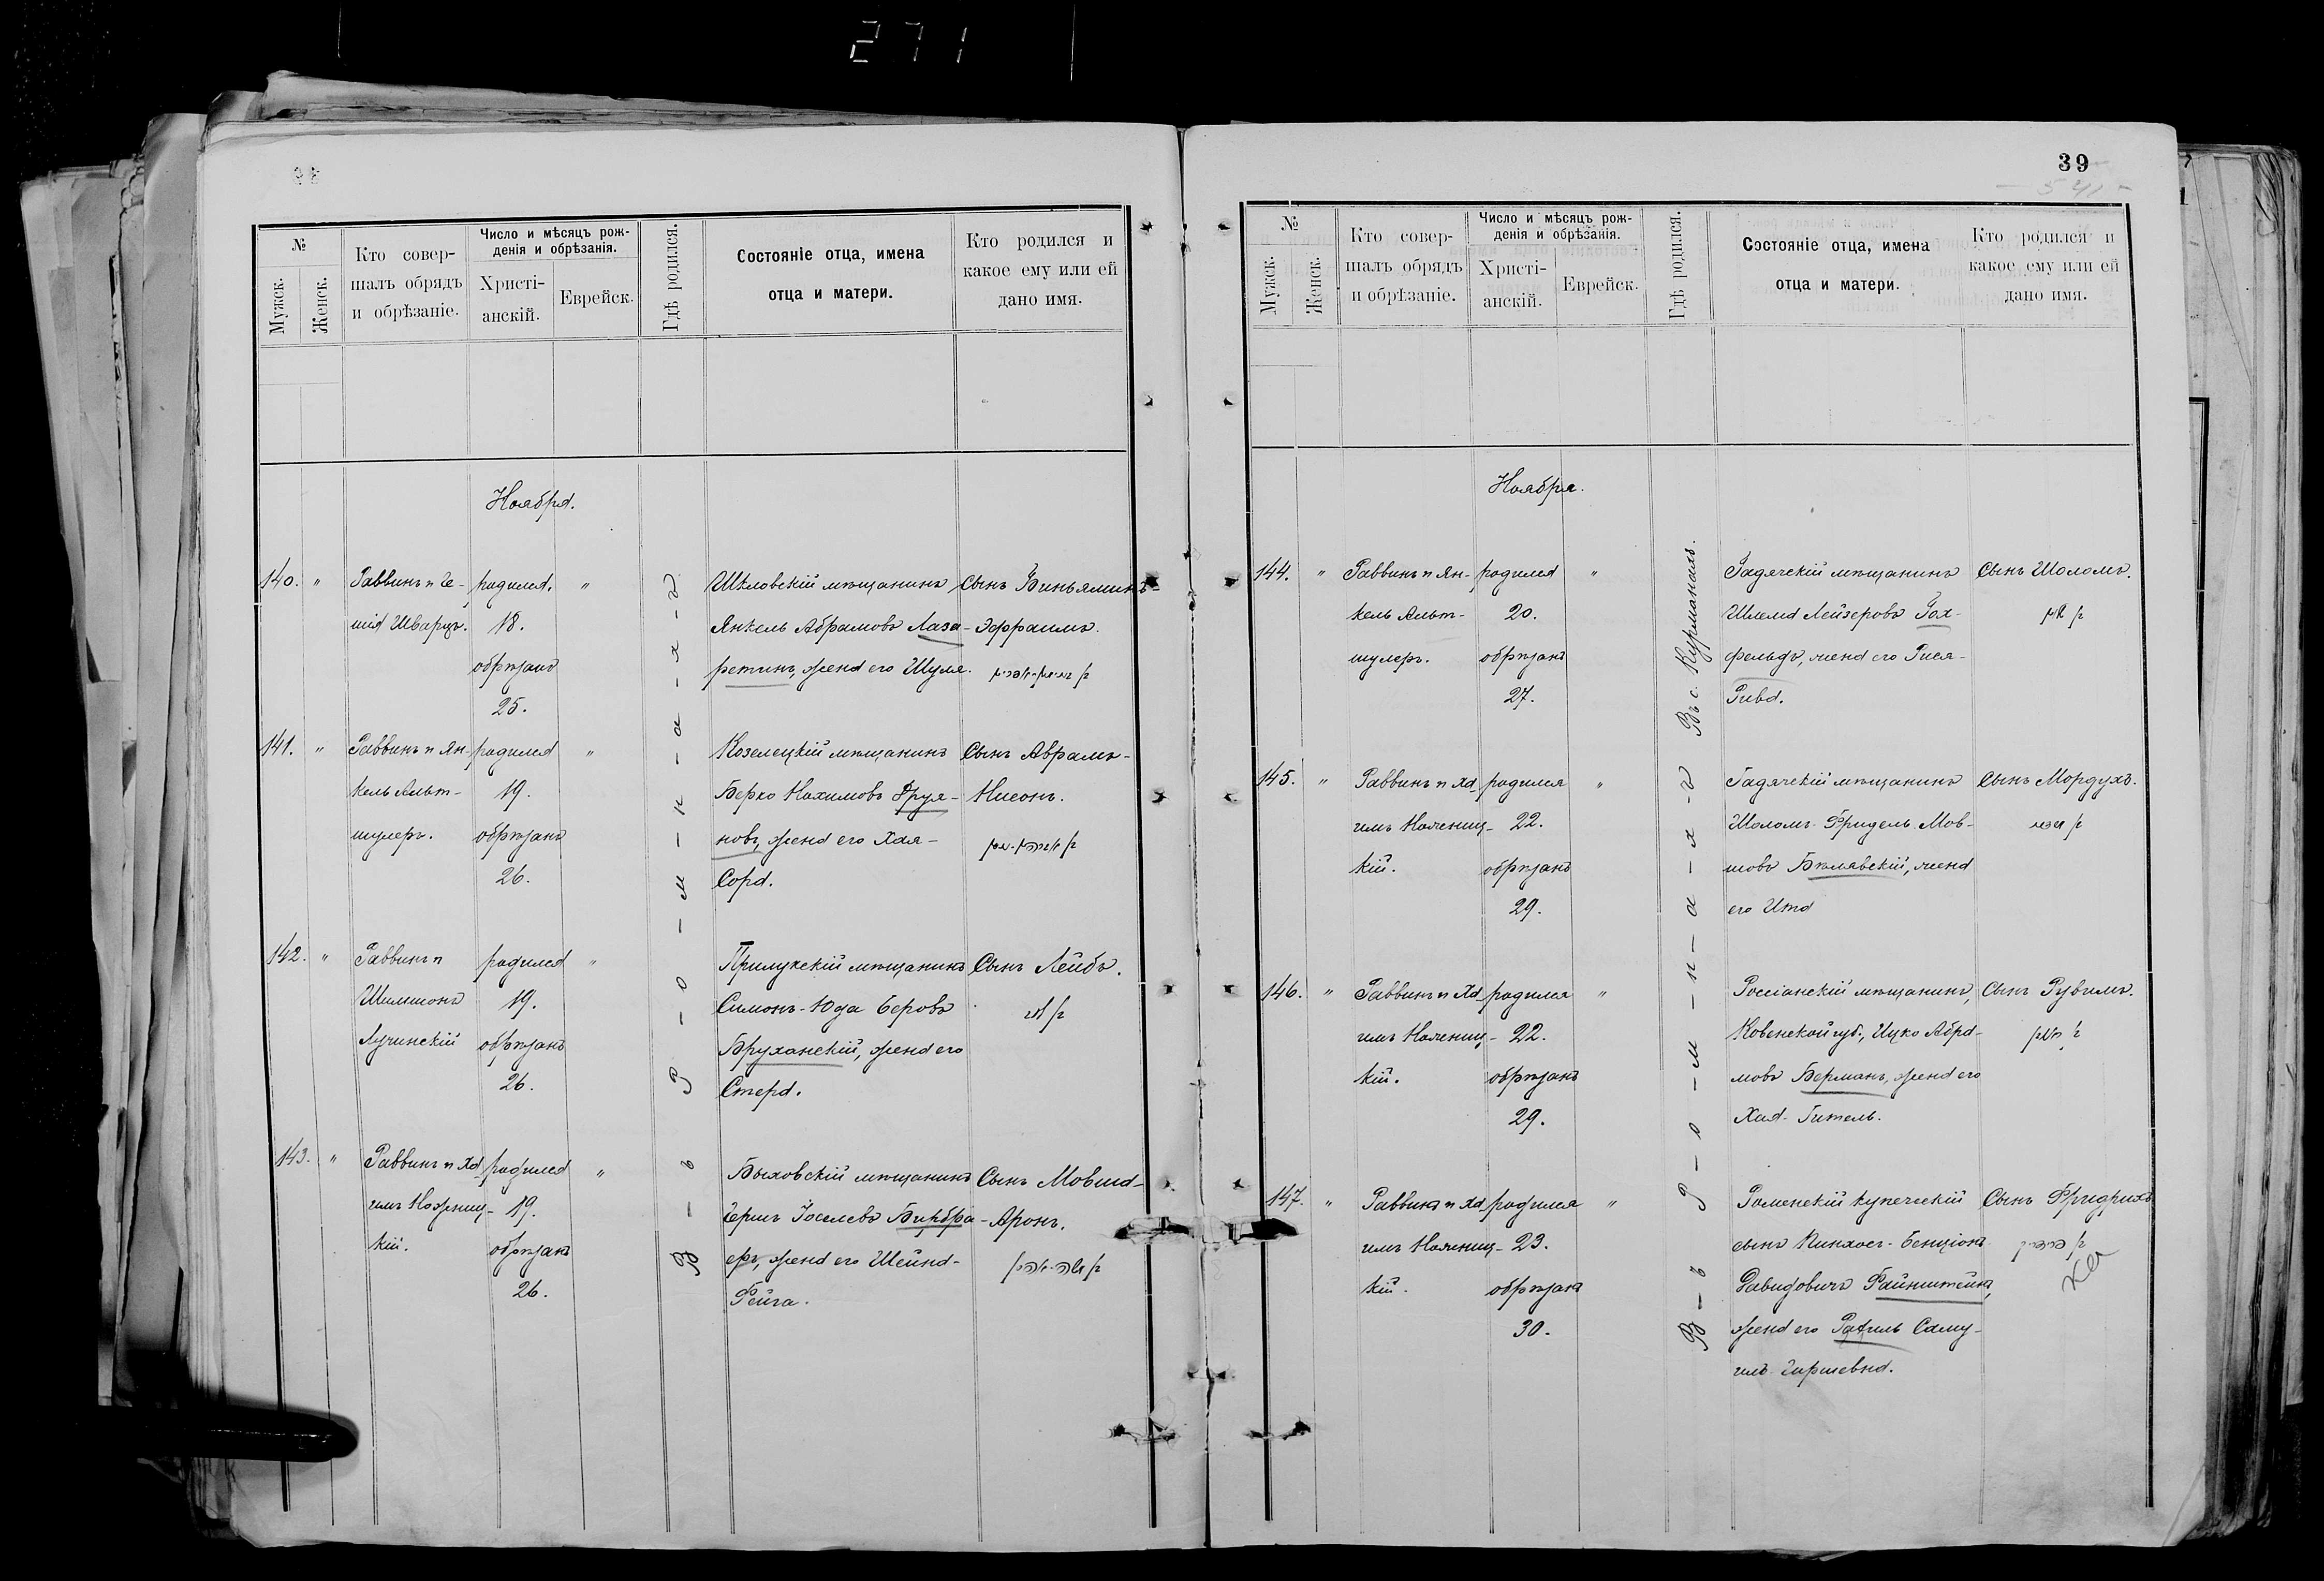 271
39
№
Мужск.
Женск.
Кто совер-
шалъ обрядъ
и обрѣзаніе.
Число и мѣсяцъ рож-
денія и обрѣзанія.
Христі-
анскій.
Еврейск.
Гдѣ родился.
Состояніе отца, имена
отца и матери.
Кто родился и
какое ему или ей
дано имя.
Ноября.
140. " Раввинъ и Ге-
шія Шварцъ.
родился.
18.
обрѣзанъ
25.
"
Шкловскій мѣщанинъ
Янкель Абрамовъ Лаза-
ретинъ, жена его Шуля.
Сынъ Виньяминъ-
Эфраимъ.
141. " Раввинъ и Ян-
кель Альт-
шулеръ.
родился
19.
обрѣзанъ
26.
"
Козелецкій мѣщанинъ
Берко Нахимовъ Фруя-
новъ, жена его Хая-
Сора.
Сынъ Аврамъ-
Нисонъ.
142. " Раввинъ и
Шимшонъ
Лучинскій
родился
19.
обрѣзанъ
26.
"
Прилукскій мѣщанинъ
Симонъ-Юда Беровъ
Бруханскій, жена его
Стера.
Сынъ Лейбъ.
143. " Раввинъ и Ха-
имъ Ножниц-
кій.
родился
19.
обрѣзанъ
26.
"
Быховскій мѣщанинъ
Гершъ Іоселевъ
еръ, жена его Шейна-
Рейза.
Сынъ Мовша-
Аронъ.
В-ъ Р-о-м-н-а-х-ъ
№
Мужск.
Женск.
Кто совер-
шалъ обрядъ
и обрѣзаніе.
Число и мѣсяцъ рож-
денія и обрѣзанія.
Христі-
анскій.
Еврейск.
Гдѣ родился.
Состояніе отца, имена
отца и матери.
Кто родился и
какое ему или ей
дано имя.
Ноября.
144. " Раввинъ и Ян-
кель Альт-
шулеръ.
родился
20.
обрѣзанъ
27.
"
Въ с. Курманахъ.
Гадячскій мѣщанинъ
Шлема Лейзеровъ Гох-
фельдъ, жена его Рися-
Рива.
Сынъ Шоломъ.
145. " Раввинъ и Ха-
имъ Ножниц-
кій.
родился
22.
обрѣзанъ
29.
"
Гадячскій мѣщанинъ
Шоломъ-Фридель Мов-
шовъ Бѣлявскій, жена
его Ита
Сынъ Мордухъ.
146. " Раввинъ и Ха-
имъ Ножниц-
кій.
родился
22.
обрѣзанъ
29.
"
Россіанскій мѣщанинъ,
Ковенской губ., Ицко Абра-
мовъ Берманъ, жена его
Хая-Гитель.
Сынъ Рувимъ.
147. " Раввинъ и Ха-
имъ Ножниц-
кій.
родился
23.
обрѣзанъ
30.
"
Роменскій купеческій
сынъ Пинхосъ-Бенціонъ
Давидовичъ Файнштейнъ,
жена его Рахиль Саму-
илъ-Гиршевна.
Сынъ Фридрихъ
В-ъ Р-о-м-н-а-х-ъ